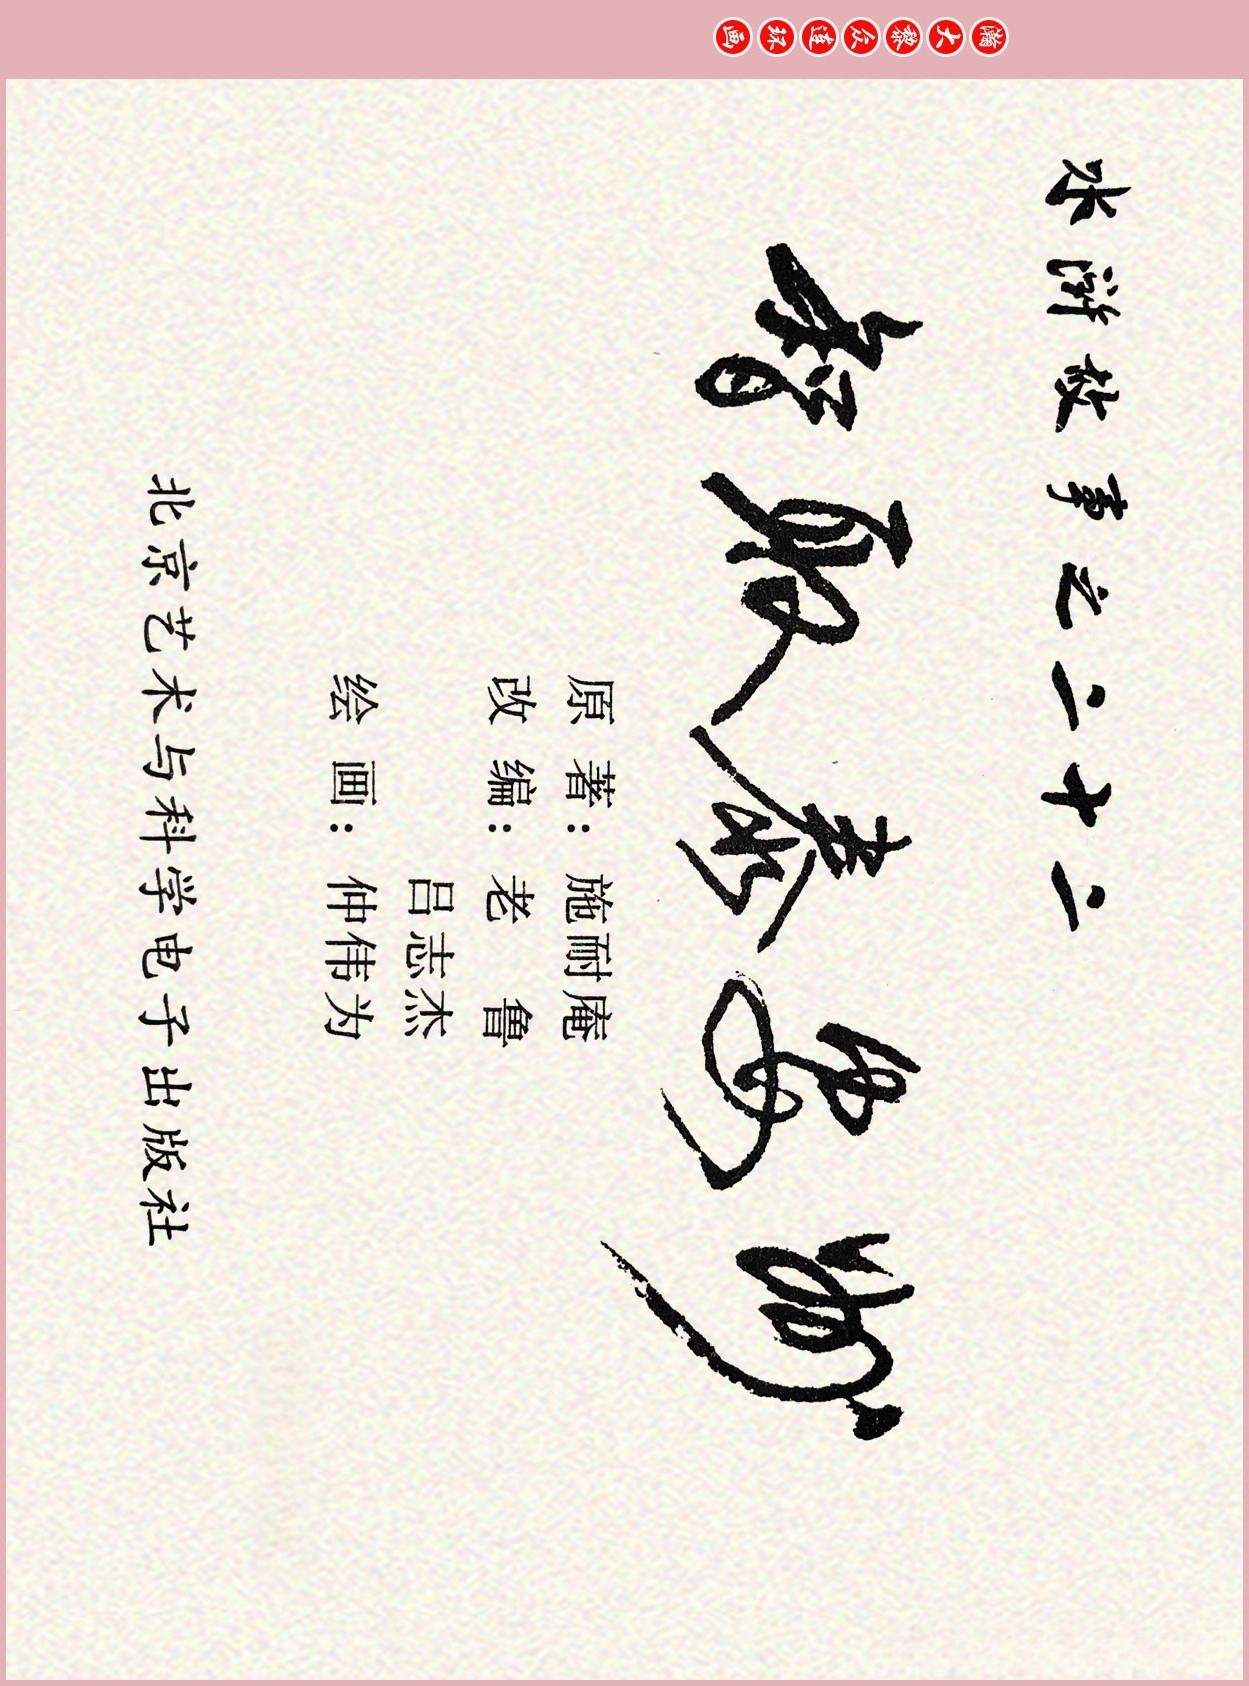 瀚大黎众连环画
水浒故事之二十二
智取
原著：施耐庵
改编：老鲁
吕志杰
绘画：仲伟为
北京艺术与科学电子出版社